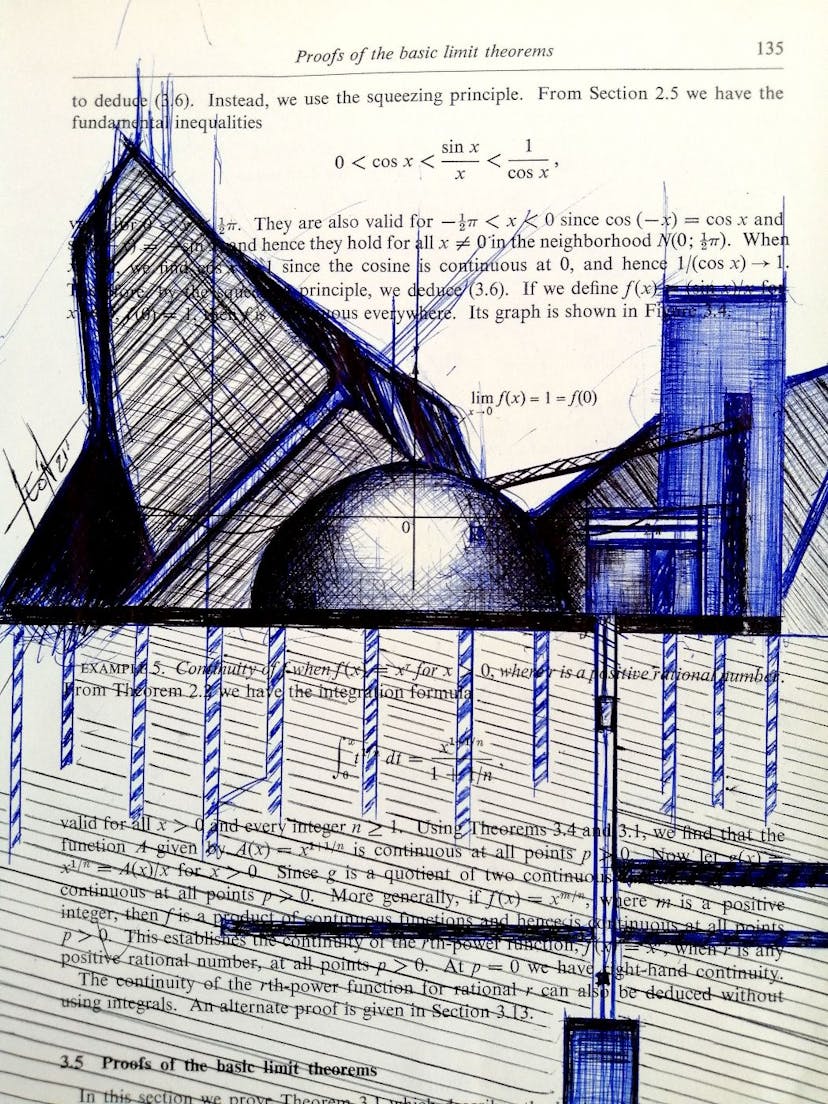 Proofs of the basic limit theorems 135
to deduce (3.6). Instead, we use the squeezing principle. From Section 2.5 we have the
fundamental inequalities
0 < cos x < sin x / x < 1 / cos x ,
½π. They are also valid for −½π < x < 0 since cos (−x) = cos x and
and hence they hold for all x ≠ 0 in the neighborhood N(0; ½π). When
we find cos x → 1 since the cosine is continuous at 0, and hence 1/(cos x) → 1.
Therefore, by the squeezing principle, we deduce (3.6). If we define f(x) = (sin x)/x for
f(0) = 1, then f is continuous everywhere. Its graph is shown in Figure 3.4.
lim x→0 f(x) = 1 = f(0)
0
EXAMPLE 5. Continuity of f when f(x) = xʳ for x > 0, where r is a positive rational number.
From Theorem 2.2 we have the integration formula
∫₀ˣ t^{1/n} dt = x^{1+1/n} / 1 + 1/n ,
valid for all x > 0 and every integer n ≥ 1. Using Theorems 3.4 and 3.1, we find that the
function A given by A(x) = x^{1+1/n} is continuous at all points p > 0. Now let g(x) =
x^{1/n} = A(x)/x for x > 0. Since g is a quotient of two continuous
continuous at all points p > 0. More generally, if f(x) = x^{m/n}, where m is a positive
integer, then f is a product of continuous functions and hence is continuous at all points
p > 0. This establishes the continuity of the rth-power function, f(x) = xʳ, when r is any
positive rational number, at all points p > 0. At p = 0 we have right-hand continuity.
The continuity of the rth-power function for rational r can also be deduced without
using integrals. An alternate proof is given in Section 3.13.
3.5 Proofs of the basic limit theorems
In this section we prove Theorem 3.1 which describes the